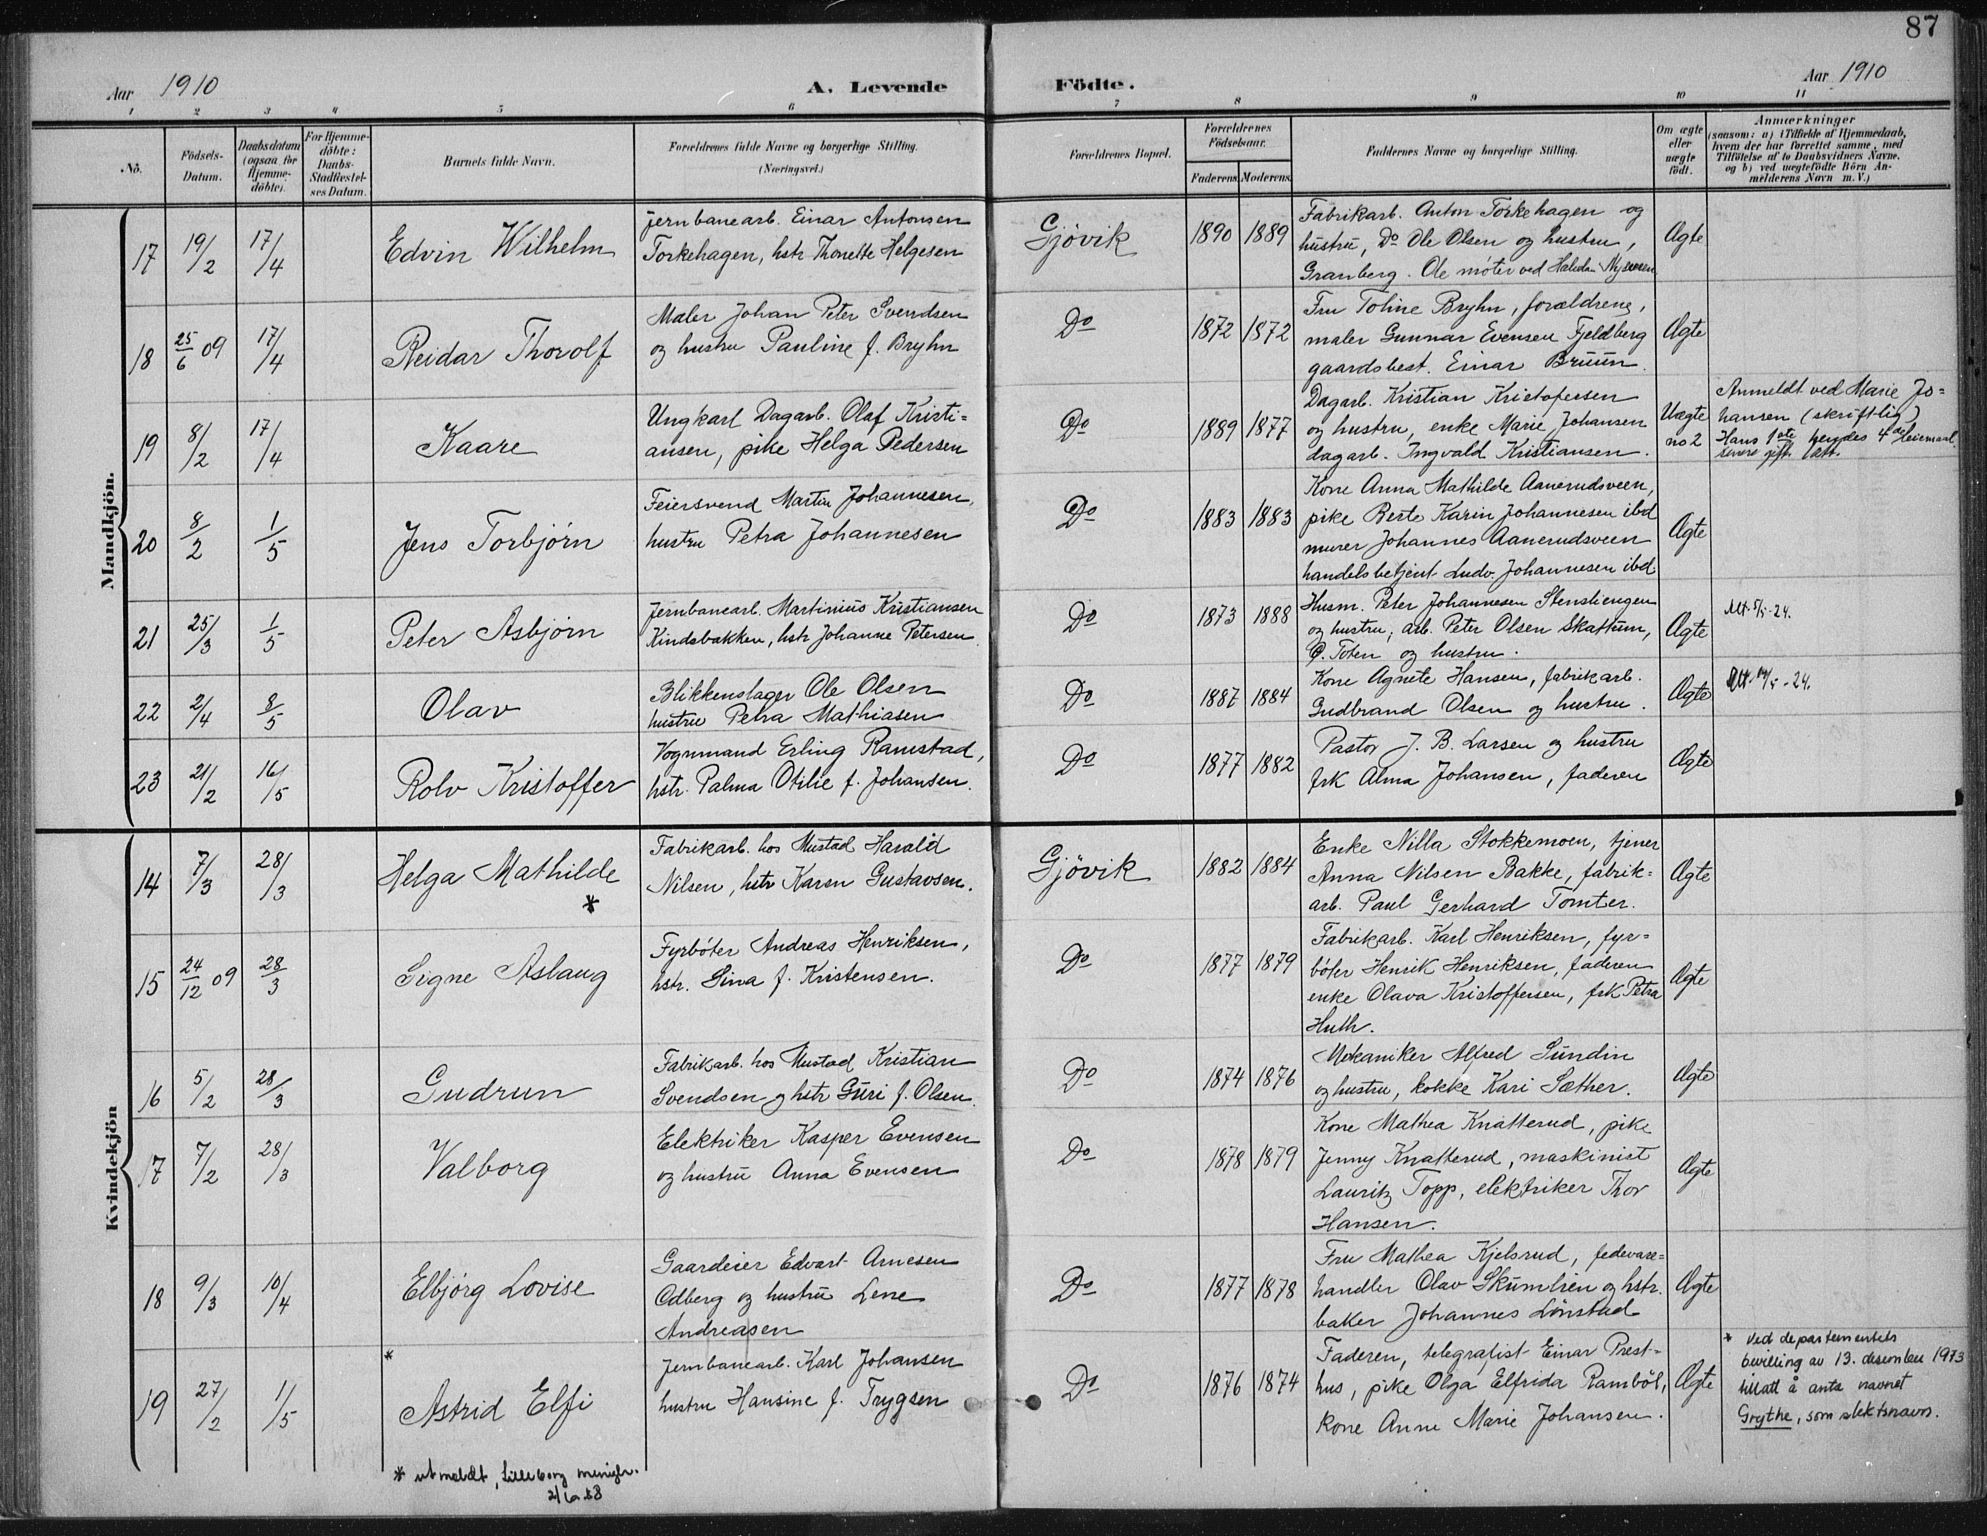 87
Aar 1910
A. Levende
Födte.
Aar 1910
1 2 3 4 5 6 7 8 9 10 11
No.
Födsels-
Datum.
Daabsdatum
(ogsaa for
Hjemme-
döbte).
For Hjemme-
döbte:
Daabs-
Stadfæstel-
ses Datum.
Barnets fulde Navn.
Forældrenes fulde Navne og borgerlige Stilling.
(Næringsvei.)
Forældrenes Bopæl.
Forældrenes
Födselsaar.
Faderens. Moderens.
Faddernes Navne og borgerlige Stilling.
Om ægte
eller
uægte
födt.
Anmærkninger
(saasom: a) i Tilfælde af Hjemmedaab,
hvem der har forrettet samme, med
Tilföielse af to Daabsvidners Navne,
og b) ved uægtefödte Börn An-
melderens Navn m. V.)
Mandkjön.
17 19/2 17/4 Edvin Wilhelm
jernbanearb. Einar Antonsen
Torkehagen, hstr Thonette Helgesen
Gjøvik 1890 1889
Fabrikarb. Anton Torkehagen og
hustru, Do Ole Olsen og hustru,
Granberg. Ole møter ved Halvdan
Ægte
18 25/6 09 17/4 Reidar Thorolf
Maler Johan Peter Svendsen
og hustru Pauline f. Bryhn
Do 1872 1872
Fru Toline Bryhn, forældrene,
maler Gunnar Evensen Fjeldberg
gaardsbest. Einar Bruun.
Ægte
19 8/2 17/4 Kaare
Ungkarl Dagarb. Olaf Kristi-
ansen, pike Helga Pedersen
Do 1889 1877
Dagarb. Kristian Kristofersen
og hustru, enke Marie Johansen
dagarb. Ingvald Kristiansen.
Uægte
no 2
Anmeldt ved Marie Jo-
hansen (skriftlig)
Hans 1ste hendes 4de leiermaal
senere gift.
20 8/2 1/5 Jens Torbjørn
Feiersvend Martin Johannesen,
hustru Petra Johannesen
Do 1883 1883
Kone Anna Mathilde Aanerudsveen,
pike Berte Karin Johannesen ibd
murer Johannes Aanerudsveen
handelsbetjent Ludv. Johannesen ibd
Ægte
21 25/3 1/5 Peter Asbjørn
Jernbanearb. Martinius Kristiansen
Kindsbakken, hstr Johanne Petersen
Do 1873 1888
Husm. Peter Johannesen Stensliengen
og hustru, arb. Peter Olsen Skattum,
Ø. Toten og hustru.
Ægte
Att. 5/5-24.
22 2/4 8/5 Olav
Blikkenslager Ole Olsen
hustru Petra Mathiasen
Do 1887 1884
Kone Agnete Hansen, fabrikarb.
Gudbrand Olsen og hustru.
Ægte
23 21/2 16/5 Rolv Kristoffer
Vognmand Erling Ramstad,
hstr. Palma Otilie f. Johansen.
Do 1877 1882
Pastor J. B. Larsen og hustru
frk Alma Johansen, faderen
Ægte
Kvindekjön
14 7/3 28/3 Helga Mathilde
*
Fabrikarb. hos Mustad Harald
Nilsen, hstr Karen Gustavsen.
Gjøvik 1882 1884
Enke Nilla Stokkemoen, tjener
Anna Nilsen Bakke, fabrik-
arb. Paul Gerhard Tomter.
Ægte
15 24/12 09 28/3 Signe Aslaug
Fyrbøter Andreas Henriksen,
hstr. Lina f. Kristensen.
Do 1877 1879
Fabrikarb. Karl Henriksen, fyr-
bøter Henrik Henriksen, faderen
enke Olava Kristoffersen, frk Petra
Huth.
Ægte
16 5/2 28/3 Gudrun
Fabrikarb. hos Mustad Kristian
Svendsen og hstr Guri f. Olsen.
Do 1874 1876
Mekaniker Alfred Sundin
og hustru, kokke Kari Sæther.
Ægte
17 7/2 28/3 Valborg
Elektriker Kasper Evensen
og hustru Anna Evensen
Do 1878 1879
Kone Mathea Knatterud, pike
Jenny Knatterud, maskinist
Lauritz Topp, elektriker Thor
Hansen.
Ægte
18 9/3 10/4 Elbjørg Lovise
Gaardeier Edvart Arnesen
Odberg og hustru Lene
Andreasen
Do 1877 1878
Fru Mathea Kjelsrud, fedevare-
handler Olav Skumlien og hstr.
baker Johannes Lønstad
Ægte
19 27/2 1/5 * Astrid Elfi
Jernbanearb. Karl Johansen
hustru Hansine f. Trygsen
Do 1876 1874
Faderen, telegrafist Einar Prest-
hus, pike Olga Elfrida Ramböl,
kone Anne Marie Johansen.
Ægte
* Ved departementets
bevilling av 13. desember 1973
tillatt å anta navnet
Grythe, som slektsnavn.
* utmeldt, Lilleborg menigh.